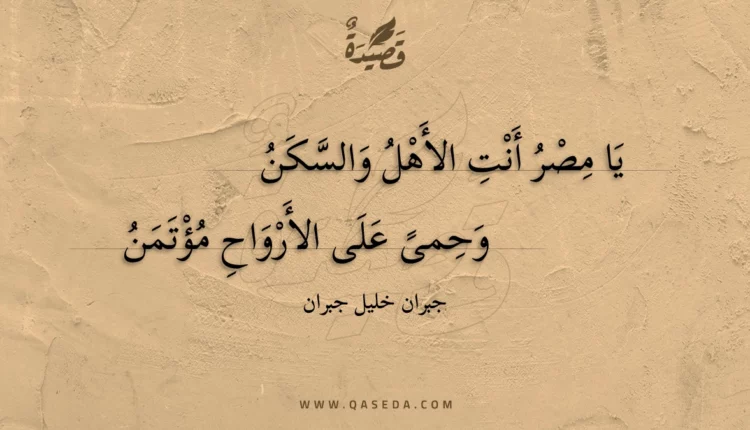 قَصِيْدَةٌ
يَا مِصْرُ أَنْتِ الأَهْلُ وَالسَّكَنُ
وَحِمىً عَلَى الأَرْوَاحِ مُؤْتَمَنُ
جبران خليل جبران
WWW.QASEDA.COM